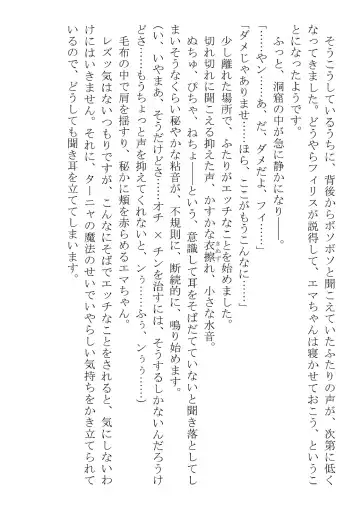 そうこうしているうちに、背後からボソボソと聞こえていたふたりの声が、次第に低く
なってきました。どうやらフィリスが説得して、エマちゃんは寝かせておこう、というこ
とになったようです。
　ふっと、洞窟の中が急に静かになり――。
「……やン……あ、だ、ダメだよ、フィ……」
「ダメじゃありませ……ほら、ここがもうこんなに……」
　少し離れた場所で、ふたりがエッチなことを始めました。
　切れ切れに聞こえる抑えた声、かすかな衣擦れ、小さな水音。
　ぬちゅ、ぴちゃ、ねちょ――という、意識して耳をそばだてていないと聞き落としてし
まいそうなくらい秘やかな粘音が、不規則に、断続的に、鳴り始めます。
（い、いやまあ、そうだけどさ……オチ×チンを治すには、そうするしかないんだろうけ
どさ……もうちょっと声を抑えてくれないと、ンぅ……ふぅ、ンぅぅ……）
　毛布の中で肩を揺すり、秘かに頬を赤らめるエマちゃん。
　レズッ気はないつもりですが、こんなにそばでエッチなことをされると、気にしないわ
けにはいきません。それに、ターニャの魔法のせいでいやらしい気持ちをかき立てられて
いるので、どうしても聞き耳を立ててしまいます。